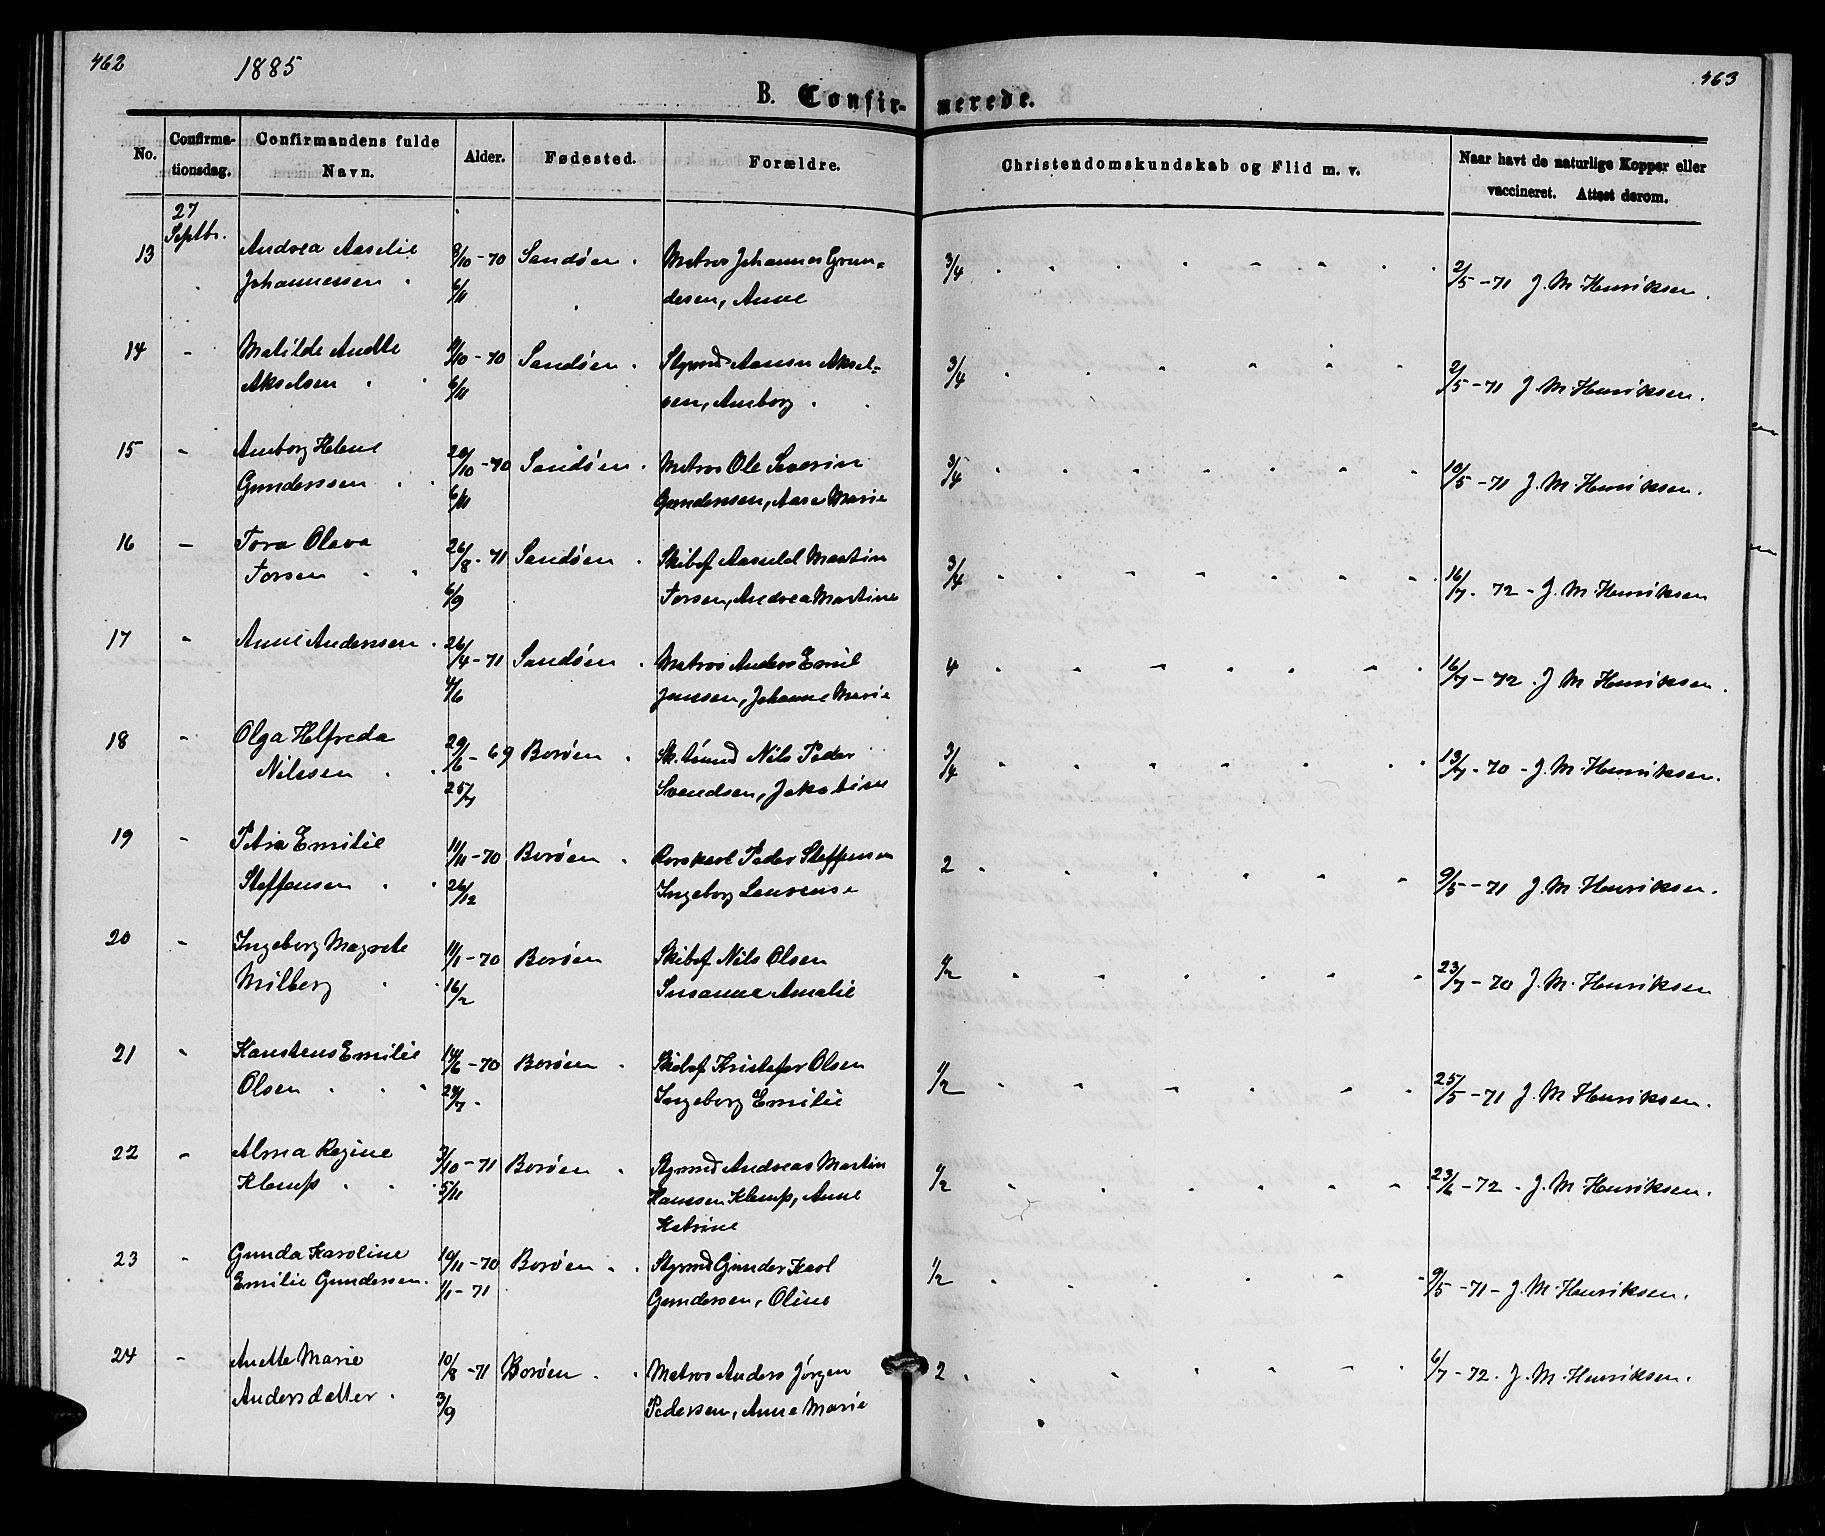 462
1885
463
B. Confir-
merede.
No.
Confirma-
tionsdag.
Confirmandens fulde
Navn.
Alder.
Fødested.
Forældre.
Christendomskundskab og Flid m. v.
Naar havt de naturlige Kopper eller
vaccineret. Attest derom.
27
Septbr.
13 Andrea Aaselie 8/10 - 70 Sandøen . Matros Johannes Gun- 3/4 2/5 - 71 J. M. Henriksen.
Johannessen . 6/11 desen, Anne
14 - Matilde Anette 9/10 - 70 Sandøen . Styrmd Aanon Aksel- 3/4 2/5 - 71 J. M. Henriksen.
Akselsen . . 6/11 sen, Amborg .
15 - Amborg Helene 20/10 - 70 Sandøen . Matros Ole Severin 3/4 10/5 - 71 J. M. Henriksen.
Gunderssen . . 6/11 Gunderssen, Aase Marie
16 - Tora Olava 26/8 - 71 Sandøen . Skibsf Aanuld Martin 3/4 16/7 - 72 - J. M. Henriksen
Torsen . . 6/9 Torsen, Andrea Martine
17 - Anne Anderssen . 26/4 - 71 Sandøen . Matros Anders Emil 4 16/7 - 72 . J M Henriksen.
4/6 Jenssen, Johanne Marie
18 - Olga Helfreda 29/6 - 69 Borøen . Sk.tømmd Nils Peder 3/4 13/7 - 70 - J. M. Henriksen.
Nilssen . . 25/7 Svendsen, Jakobine
19 - Petra Emilie 11/11 - 70 Borøen . Rorskarl Peder Steffensen 2 9/5 - 71 J. M. Henriksen.
Steffensen . . 26/12 Ingeborg Laurense
20 - Ingeborg Magrete 11/1 - 70 Borøen Skibsf Nils Olsen 1/2 23/7 - 70 J. M. Henriksen
Milberg . . 16/2 Susanne Amalie
21 - Kanstens Emilie 14/6 - 70 Borøen . Skibsf Kristofer Olsen 1/2 25/5 - 71 J. M Henriksen.
Olsen . . . 24/7 . Ingeborg Emilie
22 - Alma Regine 3/10 - 71 Borøen . Styrmd Andreas Martin 1/2 23/6 - 72 - J. M. Henriksen.
Klemp . . 5/11 Hanssen Klemp, Anne
Katrine
23 - Gunda Karoline 19/11 - 70 Borøen . . Styrmd Gunder Karl 1/2 9/5 - 71 - J. M. Henriksen.
Emilie Gundersen. 1/1 - 71 Gundersen, Oline
24 - Anette Marie 10/8 - 71 Borøen . . Matros Anders Jørgen 2 6/7 - 72 . J. M. Henriksen.
Andersdatter . 3/9 Pedersen, Anne Marie